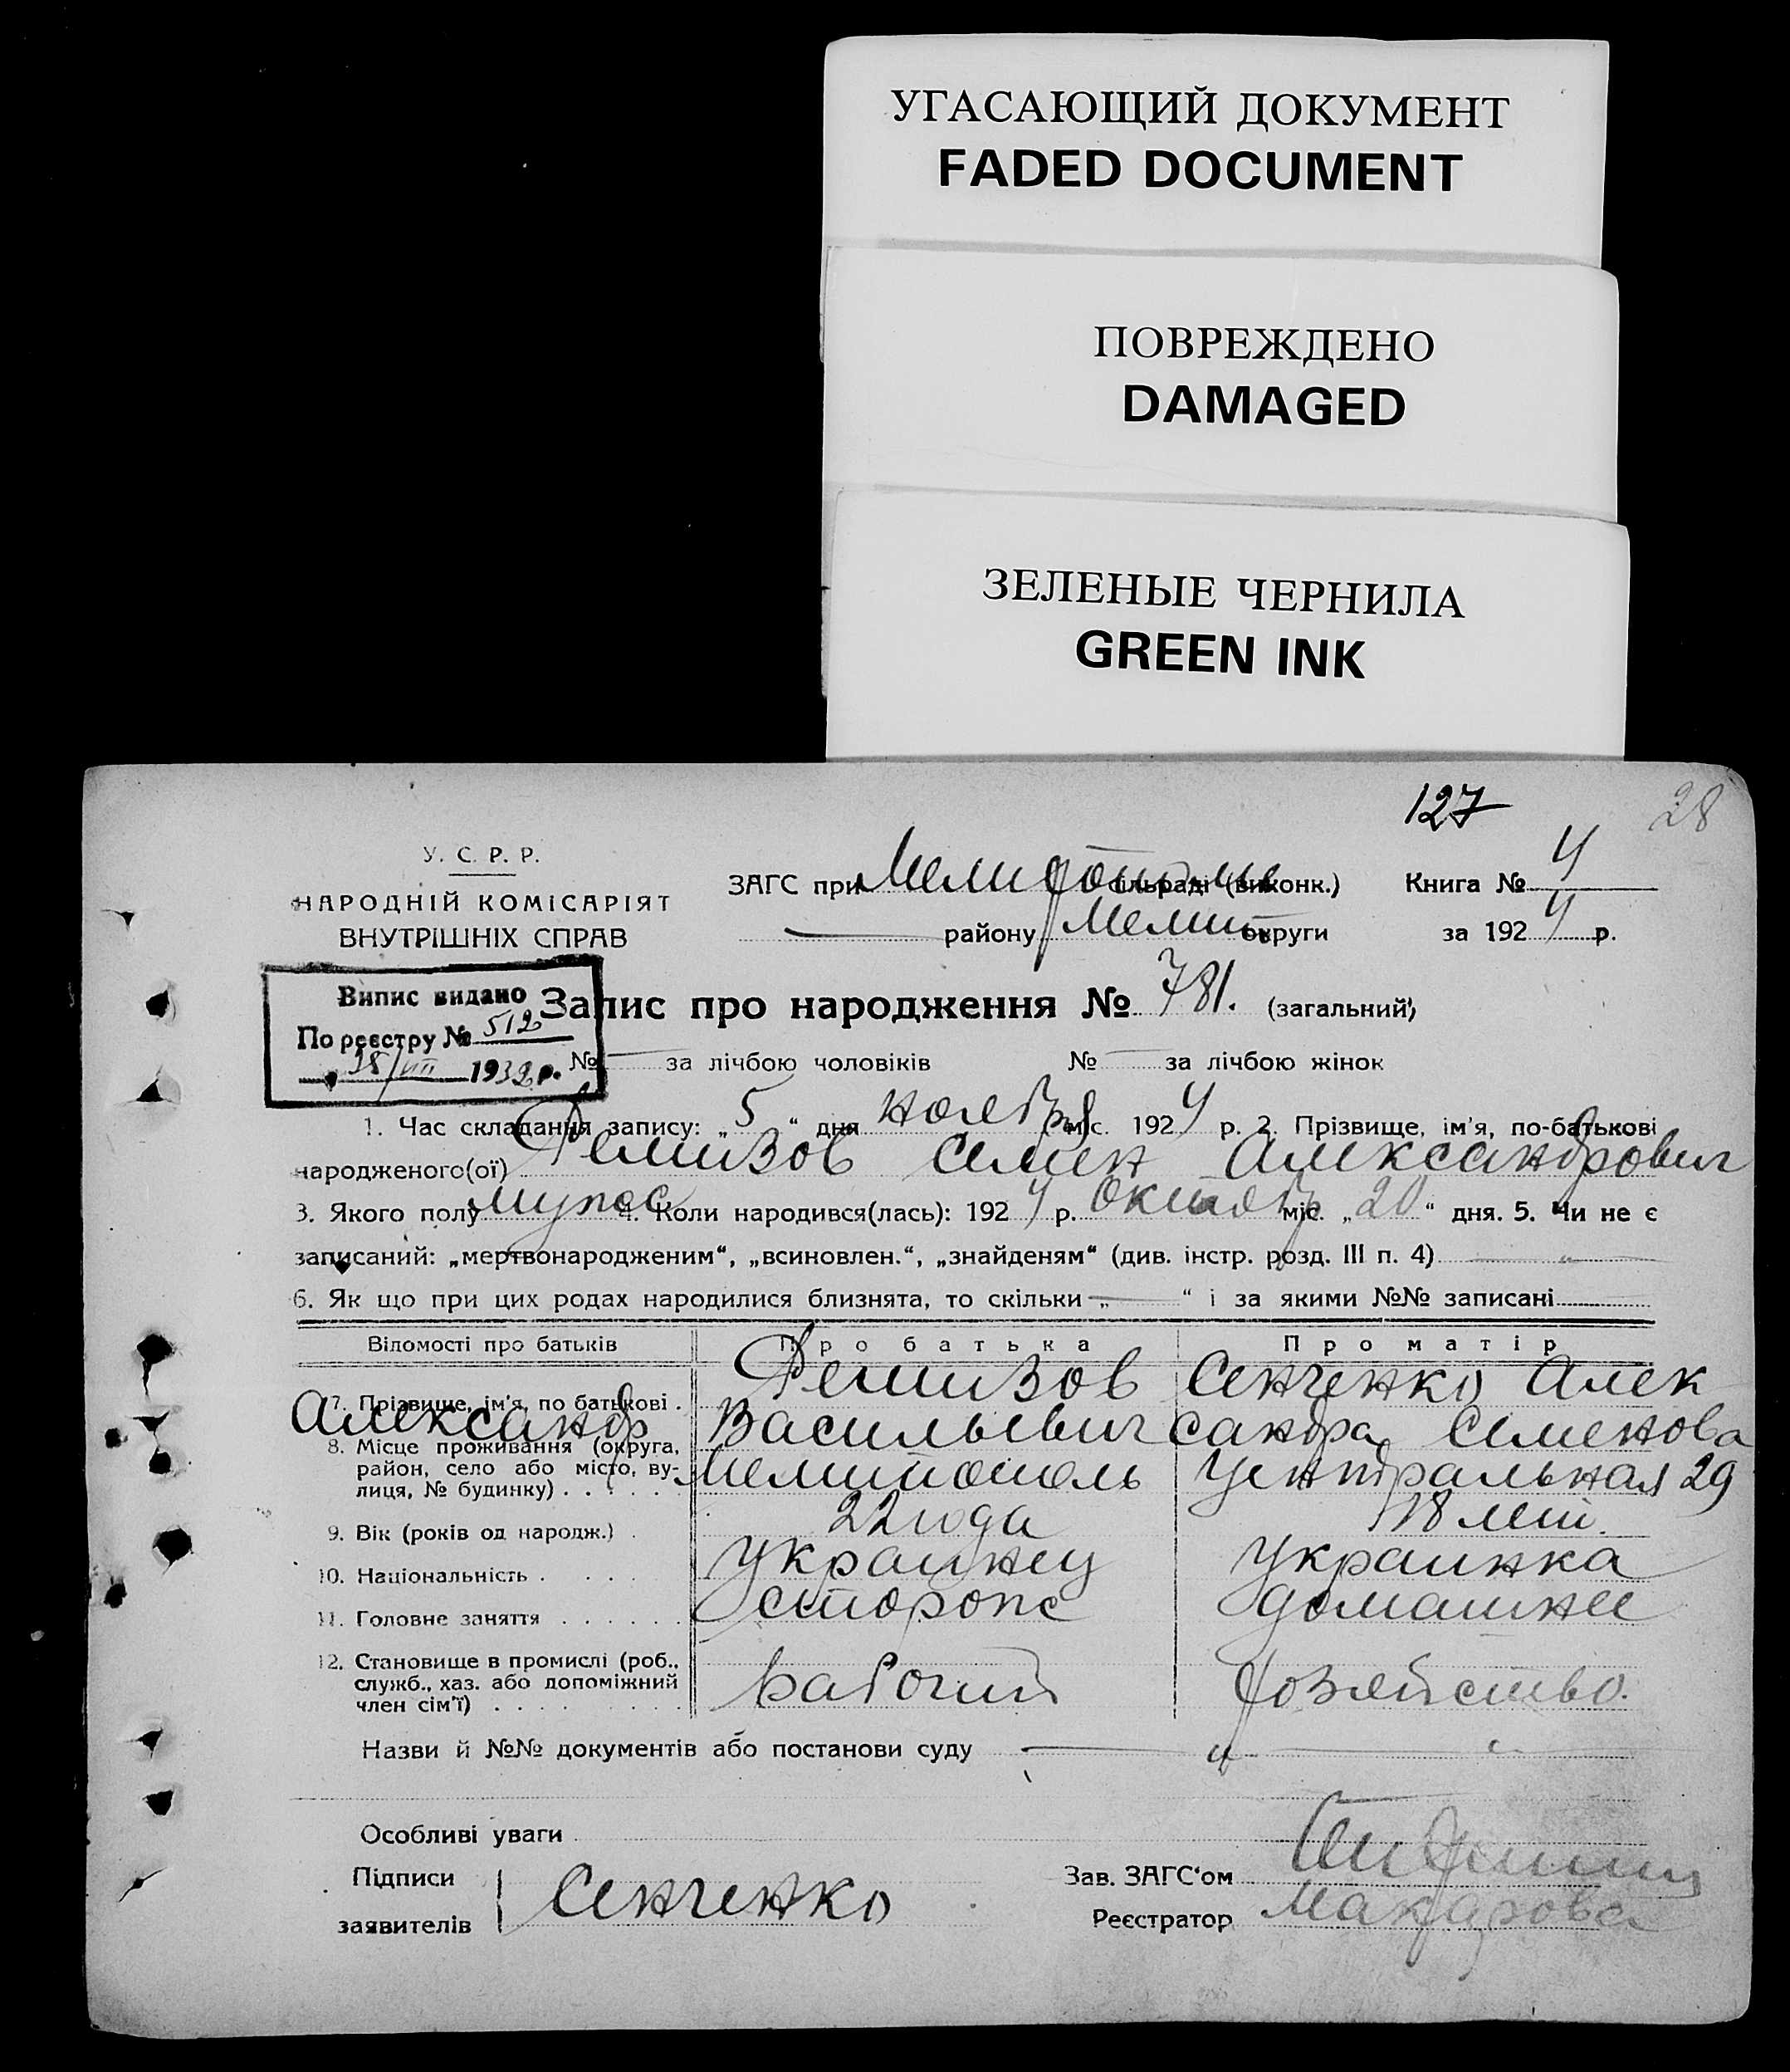 УГАСАЮЩИЙ ДОКУМЕНТ
FADED DOCUMENT
ПОВРЕЖДЕНО
DAMAGED
ЗЕЛЕНЫЕ ЧЕРНИЛА
GREEN INK
127 28
У. С. Р. Р.
НАРОДНІЙ КОМІСАРІЯТ
ВНУТРІШНІХ СПРАВ
ЗАГС при Мелитополь сільраді (виконк.) Книга № 4
району Мелит. округи за 1924 р.
Випис видано
По реєстру № 512
18/VIII 1932 р.
Запис про народження № 781. (загальний)
№ за лічбою чоловіків № за лічбою жінок
1. Час складання запису: „5“ дня ноября міс. 1924 р. 2. Прізвище, ім'я, по-батькові
народженого(ої) Ремизов Семен Александрович
3. Якого полу мужс 4. Коли народився(лась): 1924 р. Октябр міс. „20“ дня. 5. Чи не є
записаний: „мертвонародженим“, „всиновлен.“, „знайденям“ (див. інстр. розд. III п. 4)
6. Як що при цих родах народилися близнята, то скільки „ “ і за якими №№ записані
Відомості про батьків Про батька Про матір
7. Прізвище, ім'я, по батькові Ремизов Сенченко Алек
Александр Васильевич сандра Семенова
8. Місце проживання (округа, район, село або місто, вулиця, № будинку) Мелитополь Центральная 29
9. Вік (років од народж.) 22 года 18 лет
10. Національність Украинец Украинка
11. Головне заняття сторож домашнее
12. Становище в промислі (роб., служб., хаз. або допоміжний член сім'ї) рабочий хозяйство.
Назви й №№ документів або постанови суду
Особливі уваги
Підписи
заявителів Сенченко
Зав. ЗАГС'ом
Реєстратор Макарова